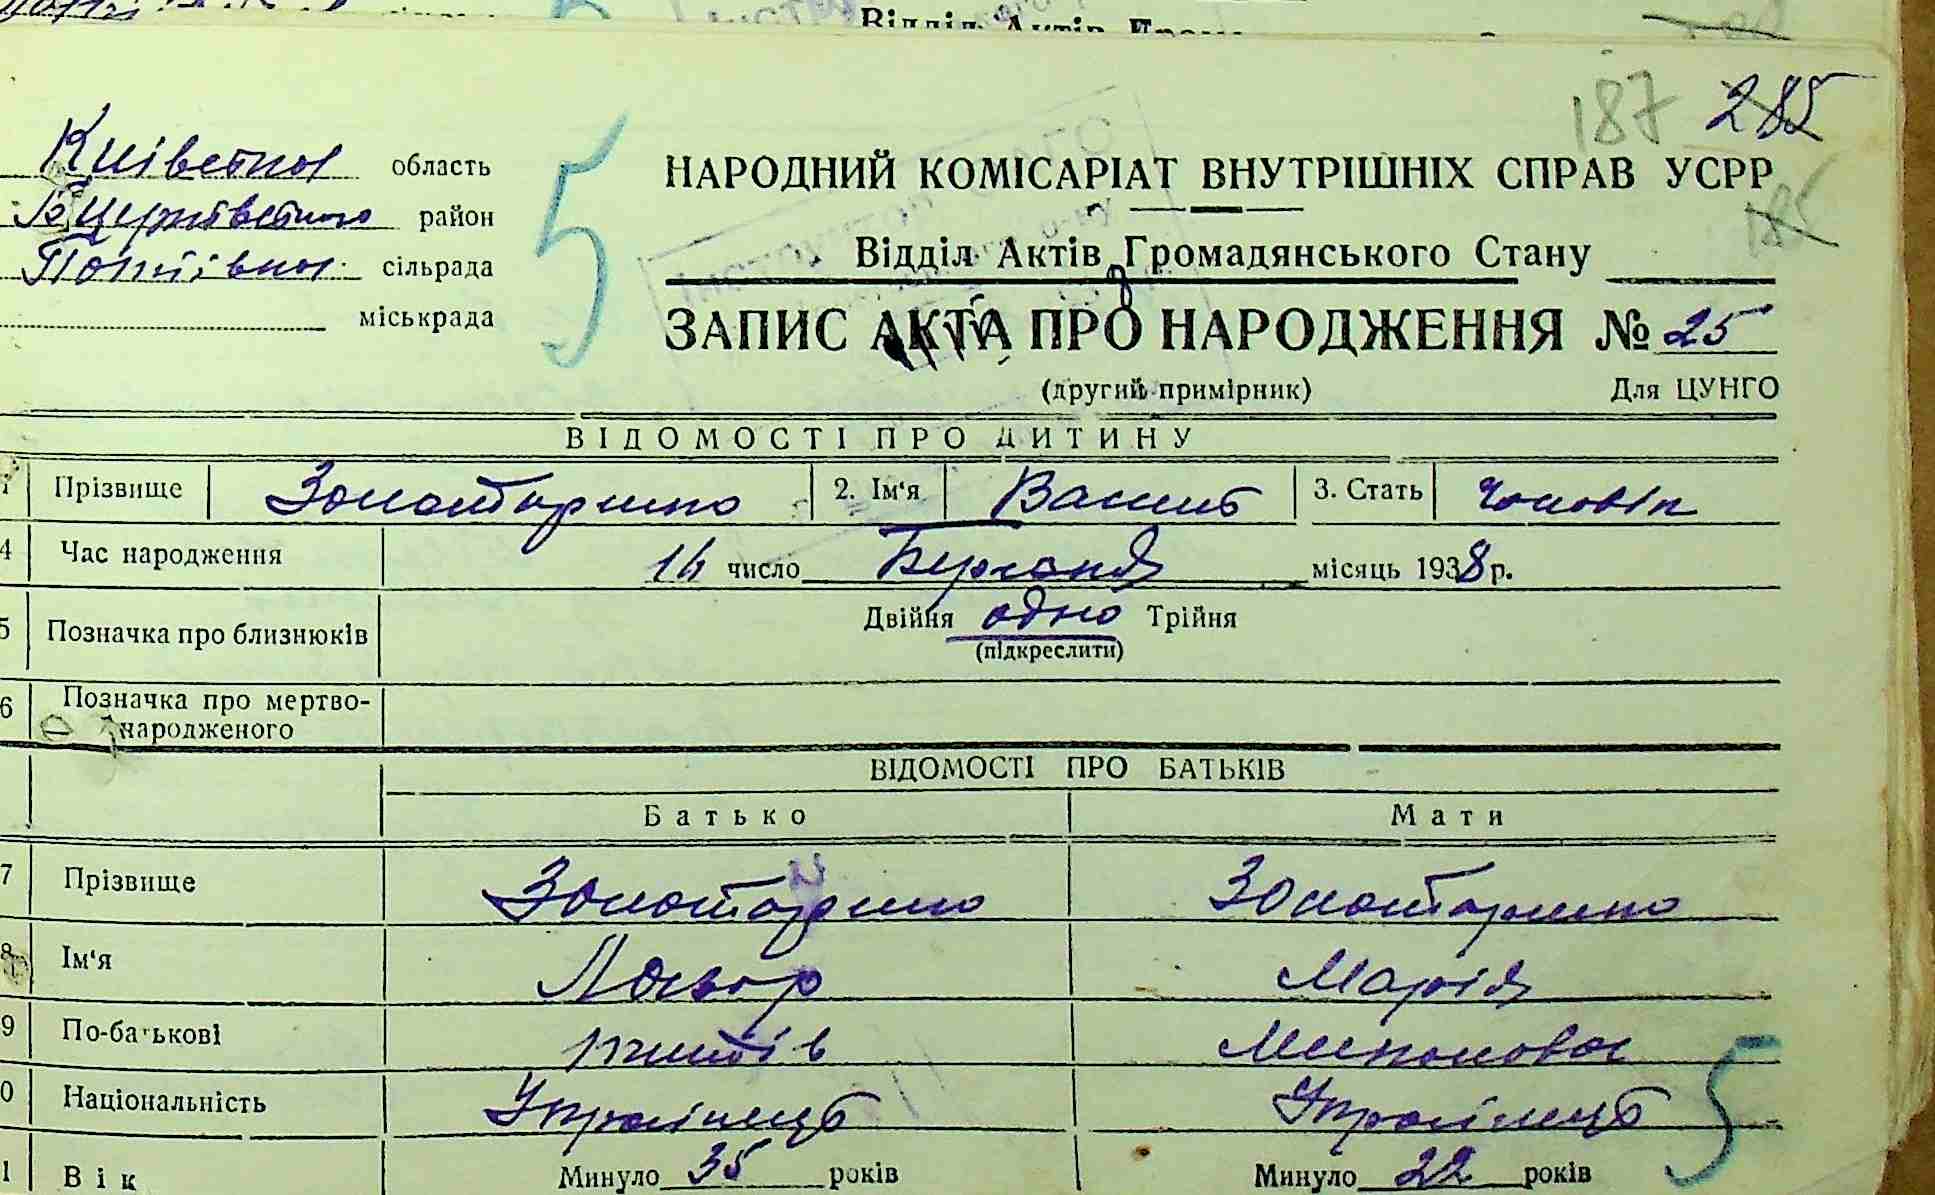 Відділ Актів Гром
187 285
185
Київська область
Б Церківського район
Потіївська сільрада
міськрада
5
НАРОДНИЙ КОМІСАРІАТ ВНУТРІШНІХ СПРАВ УСРР
Відділ Актів Громадянського Стану
ЗАПИС АКТА ПРО НАРОДЖЕННЯ № 25
(другий примірник) Для ЦУНГО
ВІДОМОСТІ ПРО ДИТИНУ
Прізвище Золотаренко 2. Ім'я Василь 3. Стать чоловік
4 Час народження 14 число Березня місяць 1938 р.
5 Позначка про близнюків Двійня одно Трійня
(підкреслити)
6 Позначка про мертво-
народженого
ВІДОМОСТІ ПРО БАТЬКІВ
Батько Мати
7 Прізвище Золотаренко Золотаренко
8 Ім'я Марія
9 По-батькові
0 Національність Українець Українець
5
1 Вік Минуло 35 років Минуло 22 років